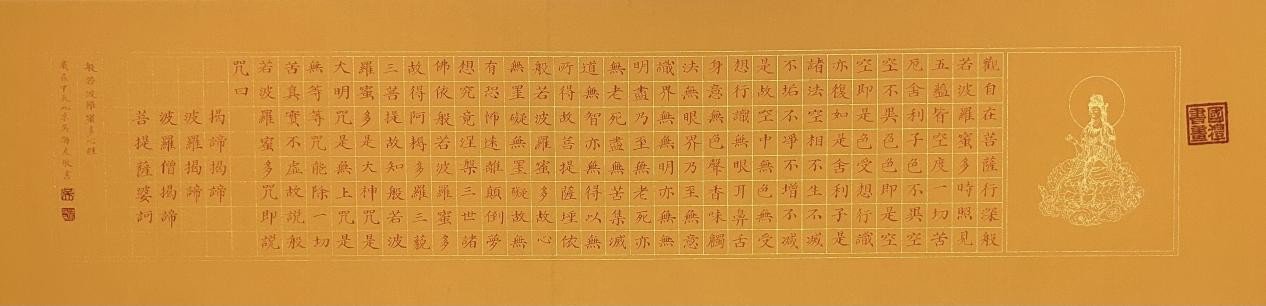 國禮書畫
觀自在菩薩行深般
若波羅蜜多時照見
五蘊皆空度一切苦
厄舍利子色不異空
空不異色色即是空
空即是色受想行識
亦復如是舍利子是
諸法空相不生不滅
不垢不淨不增不減
是故空中無色無受
想行識無眼耳鼻舌
身意無色聲香味觸
法無眼界乃至無意
識界無無明亦無無
明盡乃至無老死亦
無老死盡無苦集滅
道無智亦無得以無
所得故菩提薩埵依
般若波羅蜜多故心
無罣礙無罣礙故無
有恐怖遠離顛倒夢
想究竟涅槃三世諸
佛依般若波羅蜜多
故得阿耨多羅三藐
三菩提故知般若波
羅蜜多是大神咒是
大明咒是無上咒是
無等等咒能除一切
苦真實不虛故說般
若波羅蜜多咒即說
咒曰
揭諦揭諦
波羅揭諦
波羅僧揭諦
菩提薩婆訶
般若波羅蜜多心經
歲在甲辰